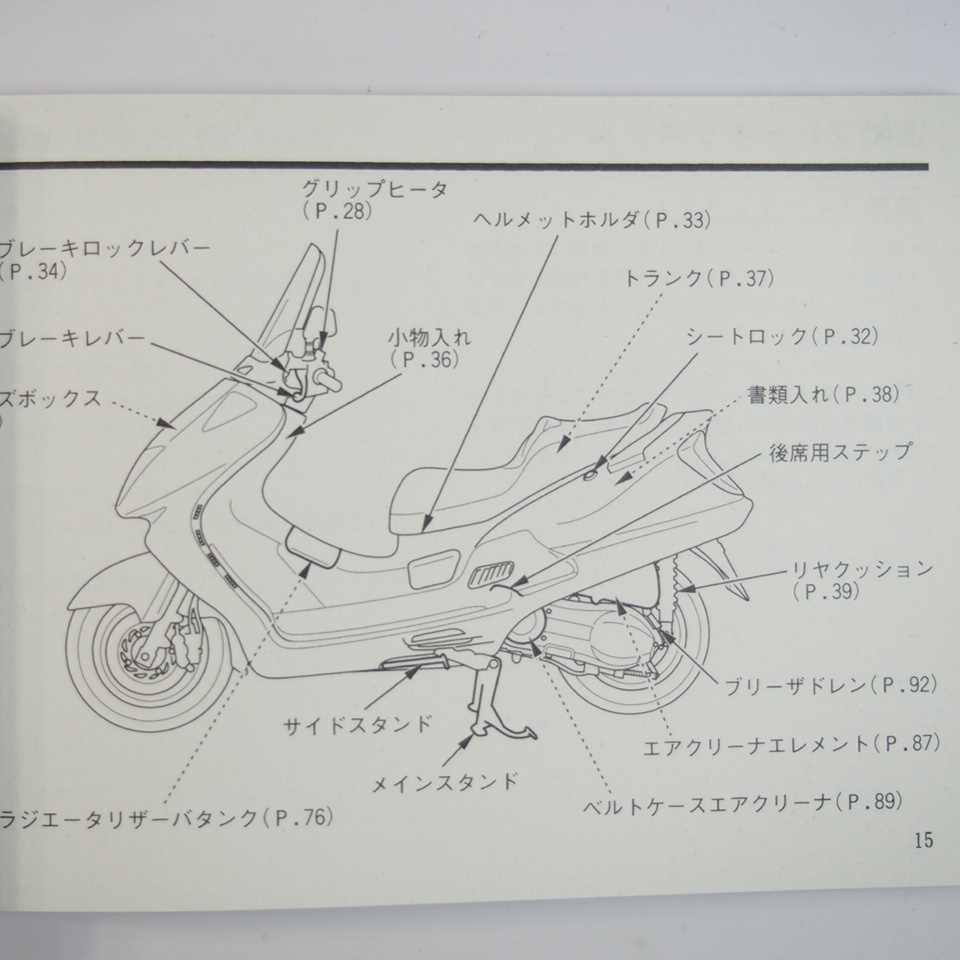 グリップヒータ
(P.28)
ヘルメットホルダ(P.33)
ブレーキロックレバー
(P.34)
トランク(P.37)
ブレーキレバー
小物入れ
(P.36)
シートロック(P.32)
ズボックス
書類入れ(P.38)
後席用ステップ
リヤクッション
(P.39)
ブリーザドレン(P.92)
サイドスタンド
エアクリーナエレメント(P.87)
メインスタンド
ベルトケースエアクリーナ(P.89)
ラジエータリザーバタンク(P.76)
15